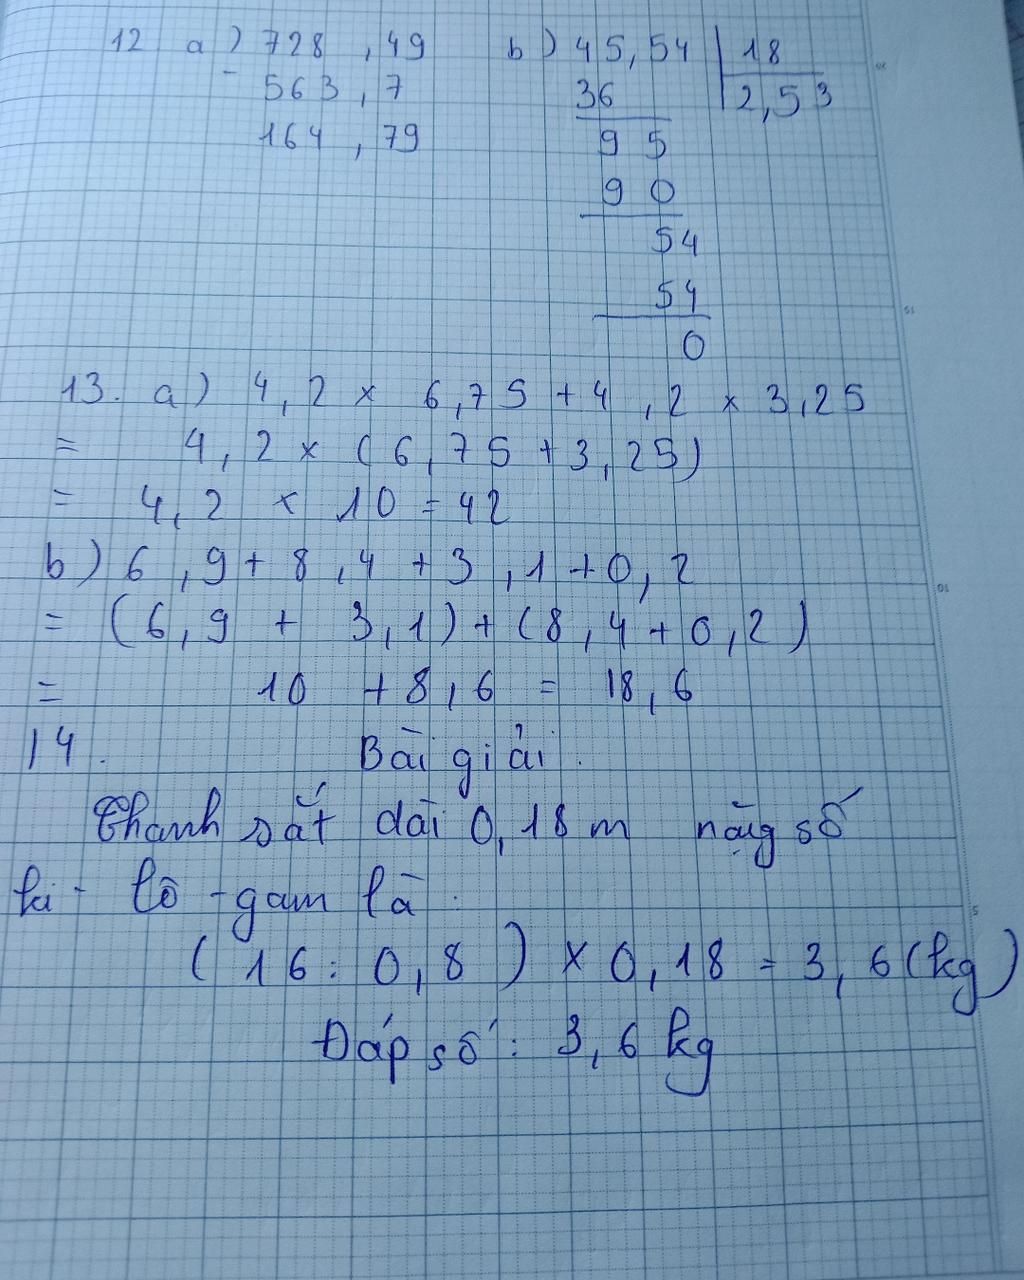 12 a) 728,49 b) 45,54 | 18
- 563,7 36 2,53
164,79 95
90
54
54
0
13. a) 4,2 x 6,75 + 4,2 x 3,25
= 4,2 x (6,75 + 3,25)
= 4,2 x 10 = 42
b) 6,9 + 8,4 + 3,1 + 0,2
= (6,9 + 3,1) + (8,4 + 0,2)
= 10 + 8,6 = 18,6
14. Bài giải.
Thanh sắt dài 0,18 m nặng số
ki-lô-gam là:
(16 : 0,8) x 0,18 = 3,6 (kg)
Đáp số: 3,6 kg